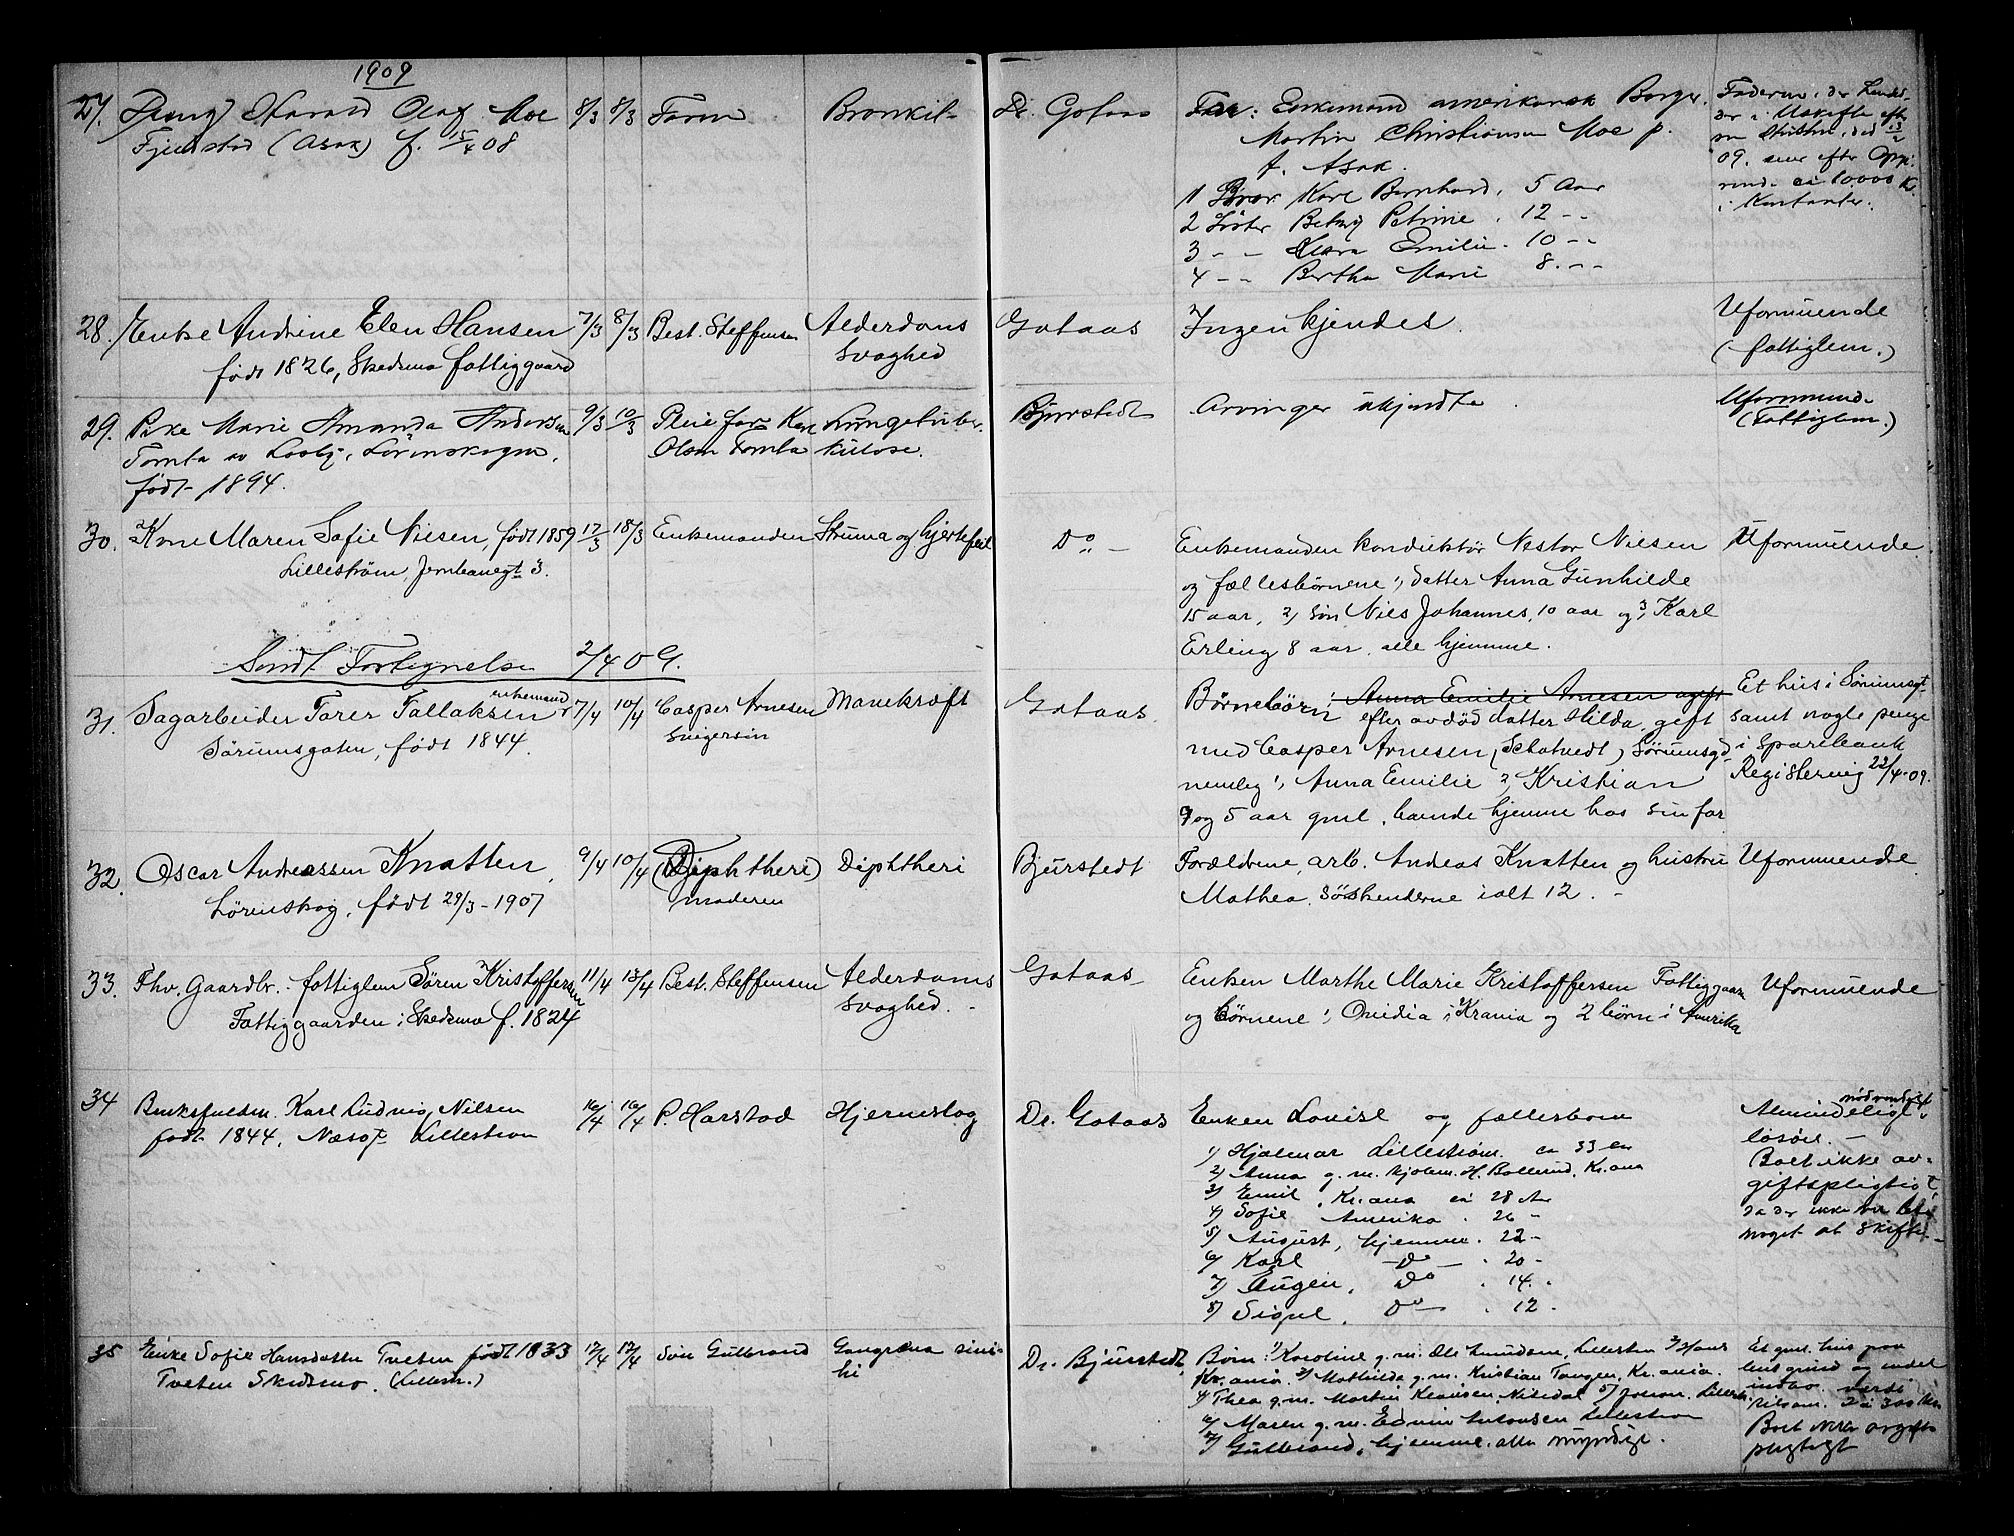 1909
27. Dreng Harald Olaf Moe 8/3 8/3 Faren Bronkit Dr. Gotaas Far: Enkemand amerikansk Borger
Fjeldstad (Asak) f. 15/4 08 Martin Christiansen Moe p.
t. Asak.
1 Bror Karl Bernhard, 5 Aar
2 Søster Betsy Petrine, 12 --
3 -- Klara Emilie. 10 --
4 -- Bertha Marie 8. --
Faderen
i Uskifte efter
09.
ca 10000 Kr.
i Kontanter.
28. Enke Andrine Elen Hansen 7/3 8/3 Best. Steffensen Alderdoms Gotaas Ingen kjendes. Uformuende
født 1826, Skedsmo fattiggaard svaghed (fattiglem.)
29. Pike Marie Amanda Andersen 9/3 10/3 Pleiefar Karl Lungetuber- Bjurstedt Arvinger ukjendte. Uformuende
Tomta av Losby, Lørenskogen, Olsen Tomta kulose. (Fattiglem.)
født 1894.
30. Kone Maren Sofie Nilsen, født 1859 17/3 18/3 Enkemanden Struma og hjertefeil Do Enkemanden konduktør Nestor Nilsen Uformuende
Lillestrøm, Jernbanegt 3. og fællesbørnene 1, datter Anna Gunhilde
15 aar, 2, søn Nils Johannes, 10 aar og 3, Karl
Erling 8 aar, alle hjemme.
Sendt Fortegnelse 2/4 09.
31. Sagarbeider Tarer Tallaksen enkemand 7/4 10/4 Casper Arnesen Marekræft Gotaas Børnebørn: Anna Emilie Arnesen ugift Et hus i Sørumsgt.
Sørumsgaten, født 1844. svigersøn efter avdød datter Hilda, gift samt nogle penge
med Casper Arnesen, (Schatvedt) Sørumsgd i Sparebank
nemlig 1, Anna Emilie 2, Kristian Registering 22/4-09.
9 og 5 aar gml, baade hjemme hos sin far
32. Oscar Andreassen Knatten, 9/4 10/4 (Diphtheri) Diphtheri Bjurstedt Forældrene, arb. Andreas Knatten og hustru Uformuende
Lørenskog, født 29/3-1907 moderen Mathea. Søskenderne ialt 12. -
33. Fhv. Gaardbr. - fattiglem Søren Kristoffersen 11/4 13/4 Best. Steffensen Alderdoms Gotaas Enken Marthe Marie Kristoffersen Fattiggaarn Uformuende
Fattiggaarden i Skedsmo f. 1824 svaghed. - og børnene 1, Ovidia i Krania og 2 børn i Amerika
34 Bruksfuldm. Karl Ludvig Nilsen 16/4 16/4 P. Harstad Hjerneslag Dr. Gotaas Enken Lovise og fællesbørn nødvendigst
født 1844, Næsgt Lillestrøm Almindeligt
1) Hjalmar Lillestrøm. ca 33 løsøre. -
2) Anna g. m. Hjalm. H. Bollerud, Kr.ania Boet ikke av-
3) Emil, Kr.ania ca 28 Aar giftspligtigt,
4) Sofie Amerika. 26 - da der ikke
5) August, hjemme. 22 - noget at skifte.
6) Karl - Do - . 20 -
7) Eugen, Do . 14. .
8) Signe, Do . 12 -
35 Enke Sofie Hansdatter Tveten født 1833 17/4 17/4 Søn Gulbrand Gangræna Dr. Bjurstedt Børn: 1) Karoline g. m. Ole Knudsen, Lillestrøm 2) Hans Et gml. hus paa
Tveten Skedsmo. (Lillestr.) Kr.ania. 3) Mathilde g. m. Kristian Tangen, Kr.ania. og
4) Thea g. m. Martin Klausen, Nitedal 5) Johan, Lillestr. indbo. verdi
6) Maren g. m. Edvin Antonsen Lillestrøm tilsam. ca 300 Kr.
7) Gulbrand, hjemme. alle myndige. Boet avgifts
pligtigt